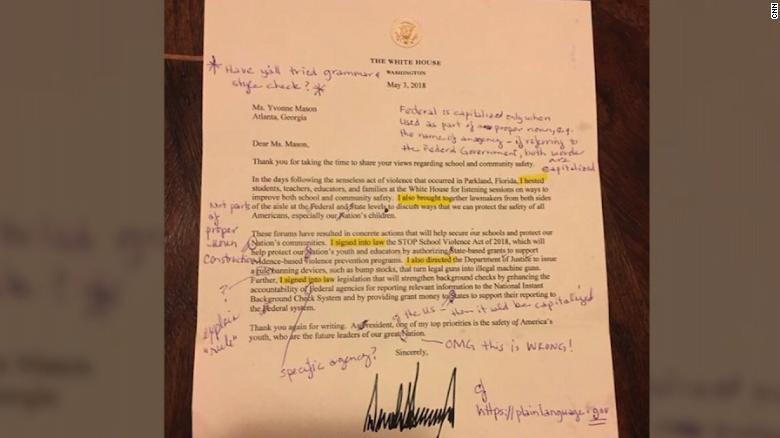 CNN
THE WHITE HOUSE
WASHINGTON
May 3, 2018
* Have y'all tried grammar &
style check? *
Ms. Yvonne Mason
Atlanta, Georgia
Federal is capitalized only when
used as part of proper noun, e.g.
the name of an agency - if referring to
the Federal Government, both words
are
capitalized
Dear Ms. Mason,
Thank you for taking the time to share your views regarding school and community safety.
In the days following the senseless act of violence that occurred in Parkland, Florida, I hosted
students, teachers, educators, and families at the White House for listening sessions on ways to
improve both school and community safety. I also brought together lawmakers from both sides
of the aisle at the Federal and State levels to discuss ways that we can protect the safety of all
Americans, especially our Nation's children.
Not part
of
proper
noun
construction
These forums have resulted in concrete actions that will help secure our schools and protect our
Nation's communities. I signed into law the STOP School Violence Act of 2018, which will
help protect our Nation's youth and educators by authorizing State-based grants to support
evidence-based violence prevention programs. I also directed the Department of Justice to issue
a rule banning devices, such as bump stocks, that turn legal guns into illegal machine guns.
Further, I signed into law legislation that will strengthen background checks by enhancing the
accountability of Federal agencies for reporting relevant information to the National Instant
Background Check System and by providing grant money to States to support their reporting to
the Federal system.
?
explain
"rule"
of the US - then it would be capitalized
Thank you again for writing. As President, one of my top priorities is the safety of America's
youth, who are the future leaders of our great Nation.
OMG this is WRONG!
Sincerely,
specific agency?
of
https://plainlanguage.gov